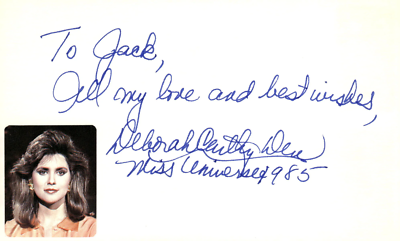 To Jack,
All my love and best wishes,
Deborah Carthy Deu
Miss Universe 1985